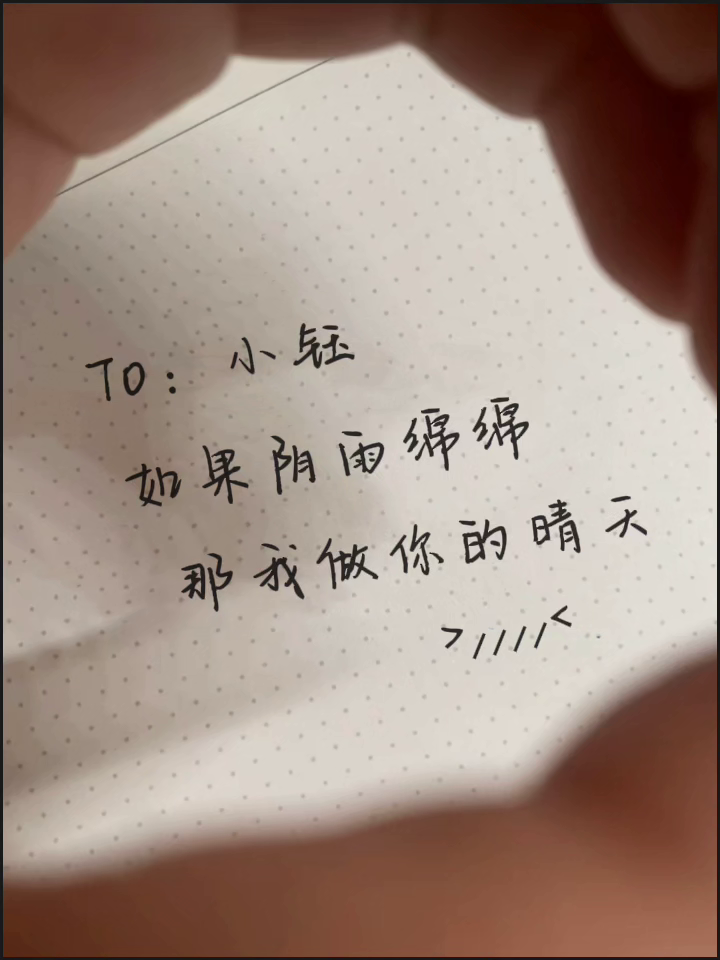 TO：小钰
如果阴雨绵绵
那我做你的晴天
>////<